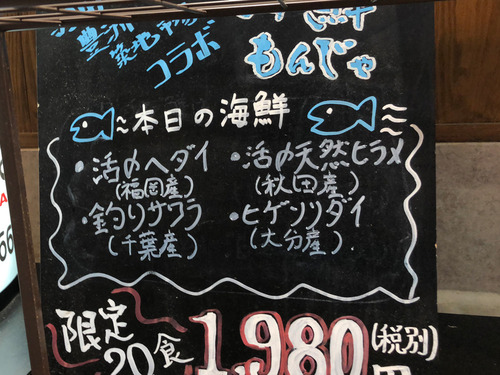 豊洲
築地市場
コラボ
海鮮
もんじゃ
本日の海鮮
・活〆ヘダイ
(福岡産)
・釣りサワラ
(千葉産)
・活〆天然ヒラメ
(秋田産)
・ヒゲソリダイ
(大分産)
限定
20食
1,980
(税別)
円